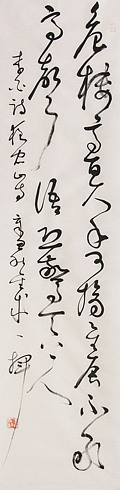 危樓高百尺手可摘星辰不敢
高聲語恐驚天上人
李白詩夜宿山寺